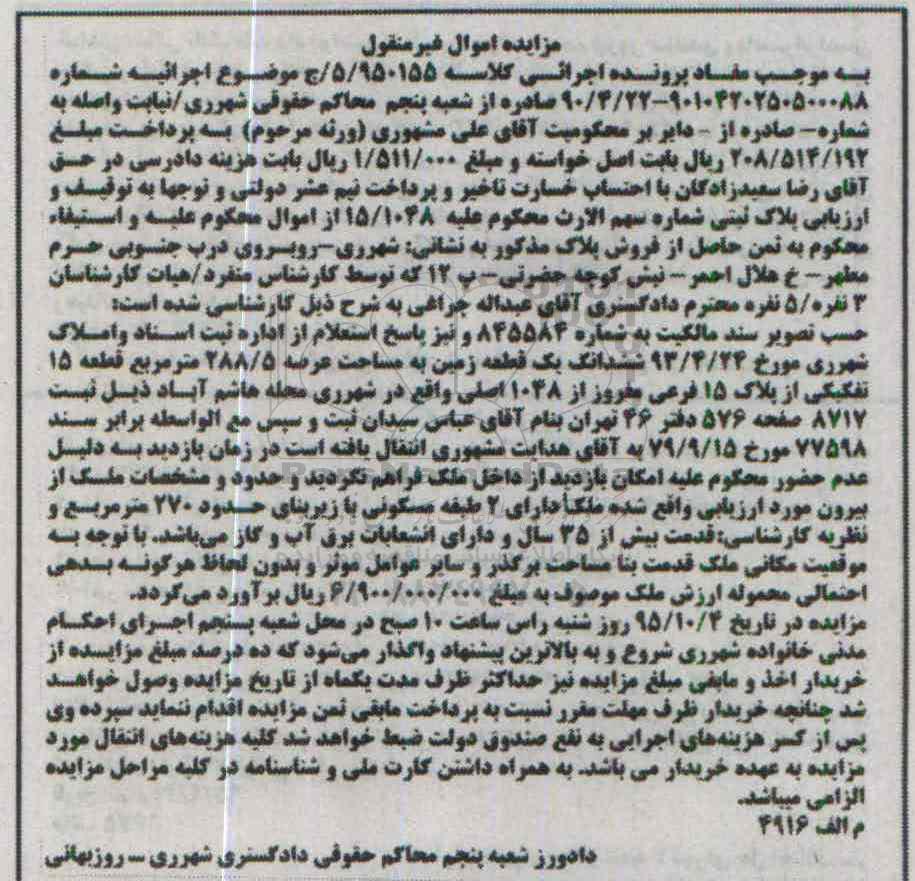 مزایده اموال غیرمنقول
به موجب مفاد پرونده اجرائی کلاسه ۵/۹۵۰۱۵۵/ج موضوع اجرائیه شماره
۹۰۱۰۴۲۰۲۵۰۵۰۰۰۸۸-۹۰/۴/۲۲ صادره از شعبه پنجم محاکم حقوقی شهرری/نیابت واصله به
شماره- صادره از - دایر بر محکومیت آقای علی مشهوری (ورثه مرحوم) به پرداخت مبلغ
۲۰۸/۵۱۴/۱۹۲ ریال بابت اصل خواسته و مبلغ ۱/۵۱۱/۰۰۰ ریال بابت هزینه دادرسی در حق
آقای رضا سعیدزادگان با احتساب خسارت تاخیر و پرداخت نیم عشر دولتی و توجها به توقیف و
ارزیابی پلاک ثبتی شماره سهم الارث محکوم علیه ۱۵/۱۰۴۸ از اموال محکوم علیه و استیفاء
محکوم به ثمن حاصل از فروش پلاک مذکور به نشانی: شهرری-روبروی درب جنوبی حرم
مطهر- خ هلال احمر- نبش کوچه حضرتی- پ ۱۲ که توسط کارشناس منفرد/هیات کارشناسان
۳ نفره/۵ نفره محترم دادگستری آقای عبداله چراغی به شرح ذیل کارشناسی شده است:
حسب تصویر سند مالکیت به شماره ۸۴۵۵۸۴ و نیز پاسخ استعلام از اداره ثبت اسناد واملاک
شهرری مورخ ۹۳/۴/۲۴ ششدانگ یک قطعه زمین به مساحت عرصه ۲۸۸/۵ مترمربع قطعه ۱۵
تفکیکی از پلاک ۱۵ فرعی مفروز از ۱۰۴۸ اصلی واقع در شهرری محله هاشم آباد ذیل ثبت
۸۷۱۷ صفحه ۵۷۶ دفتر ۴۶ تهران بنام آقای عباس سیدان ثبت و سپس مع الواسطه برابر سند
۷۷۵۹۸ مورخ ۷۹/۹/۱۵ به آقای هدایت مشهوری انتقال یافته است در زمان بازدید به دلیل
عدم حضور محکوم علیه امکان بازدید از داخل ملک فراهم نگردید و حدود و مشخصات ملک از
بیرون مورد ارزیابی واقع شده ملک دارای ۲ طبقه مسکونی با زیربنای حدود ۲۷۰ مترمربع و
نظریه کارشناسی: قدمت بیش از ۳۵ سال و دارای انشعابات برق آب و گاز می‌باشد. با توجه به
موقعیت مکانی ملک قدمت بنا مساحت برگذر و سایر عوامل موثر و بدون لحاظ هرگونه بدهی
احتمالی محموله ارزش ملک موصوف به مبلغ ۶/۹۰۰/۰۰۰/۰۰۰ ریال برآورد می‌گردد.
مزایده در تاریخ ۹۵/۱۰/۴ روز شنبه راس ساعت ۱۰ صبح در محل شعبه پنجم اجرای احکام
مدنی خانواده شهرری شروع و به بالاترین پیشنهاد واگذار می‌شود که ده درصد مبلغ مزایده از
خریدار اخذ و مابقی مبلغ مزایده نیز حداکثر ظرف مدت یکماه از تاریخ مزایده وصول خواهد
شد چنانچه خریدار ظرف مهلت مقرر نسبت به پرداخت مابقی ثمن مزایده اقدام ننماید سپرده وی
پس از کسر هزینه‌های اجرایی به نفع صندوق دولت ضبط خواهد شد کلیه هزینه‌های انتقال مورد
مزایده به عهده خریدار می باشد. به همراه داشتن کارت ملی و شناسنامه در کلیه مراحل مزایده
الزامی میباشد.
م الف ۴۹۱۶
دادورز شعبه پنجم محاکم حقوقی دادگستری شهرری ـ روزبهانی